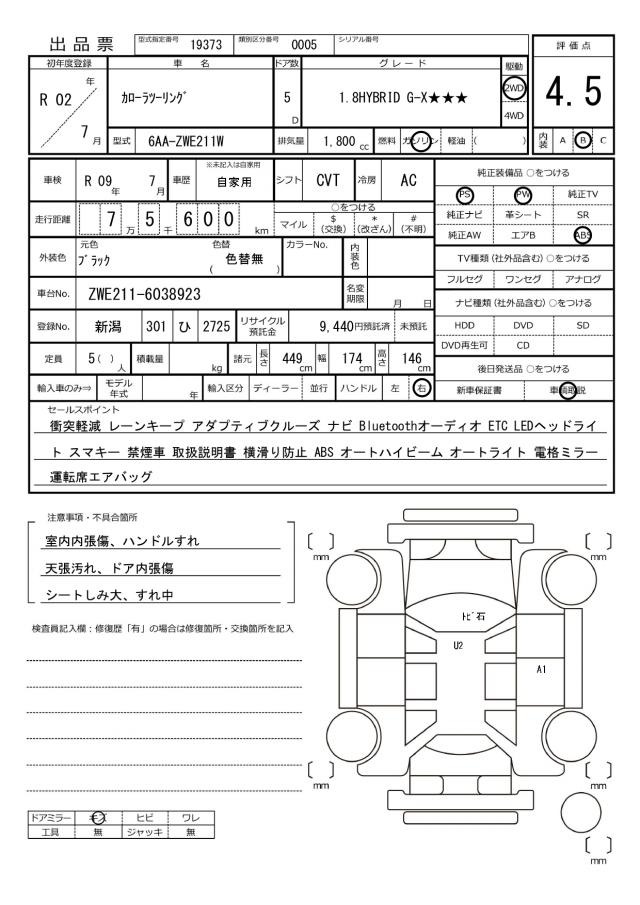 出品票 型式指定番号 19373 類別区分番号 0005 シリアル番号
初年度登録 車名 ドア数 グレード 駆動 評価点
R 02 年 7 月 カローラツーリング 5 D 1.8HYBRID G-X★★★ 2WD 4WD 4.5
型式 6AA-ZWE211W 排気量 1,800 cc 燃料 ガソリン 軽油 ( ) 内装 A B C
車検 R 09 年 7 月 車歴 ※未記入は自家用 自家用 シフト CVT 冷房 AC 純正装備品 ○をつける
PS PW 純正TV
走行距離 7 万 5 千 6 0 0 km ○をつける
マイル $ (交換) * (改ざん) # (不明)
純正ナビ 革シート SR
純正AW エアB ABS
外装色 元色 ブラック 色替 ( 色替無 ) カラーNo. 内装色
TV種類(社外品含む) ○をつける
フルセグ ワンセグ アナログ
車台No. ZWE211-6038923 名変期限 月 日
ナビ種類(社外品含む) ○をつける
登録No. 新潟 301 ひ 2725 リサイクル預託金 9,440円預託済 未預託
HDD DVD SD
DVD再生可 CD
定員 5 ( ) 人 積載量 kg 諸元 長さ 449 cm 幅 174 cm 高さ 146 cm
後日発送品 ○をつける
輸入車のみ⇒ モデル年式 年 輸入区分 ディーラー 並行 ハンドル 左 右 新車保証書 車輌取説
セールスポイント
衝突軽減 レーンキープ アダプティブクルーズ ナビ Bluetoothオーディオ ETC LEDヘッドライ
ト スマキー 禁煙車 取扱説明書 横滑り防止 ABS オートハイビーム オートライト 電格ミラー
運転席エアバッグ
注意事項・不具合箇所
室内内張傷、ハンドルすれ
天張汚れ、ドア内張傷
シートしみ大、すれ中
検査員記入欄：修復歴「有」の場合は修復箇所・交換箇所を記入
〔 〕 mm
〔 〕 mm
トビ石
U2
A1
〔 〕 mm
〔 〕 mm
〔 〕 mm
ドアミラー キズ ヒビ ワレ
工具 無 ジャッキ 無